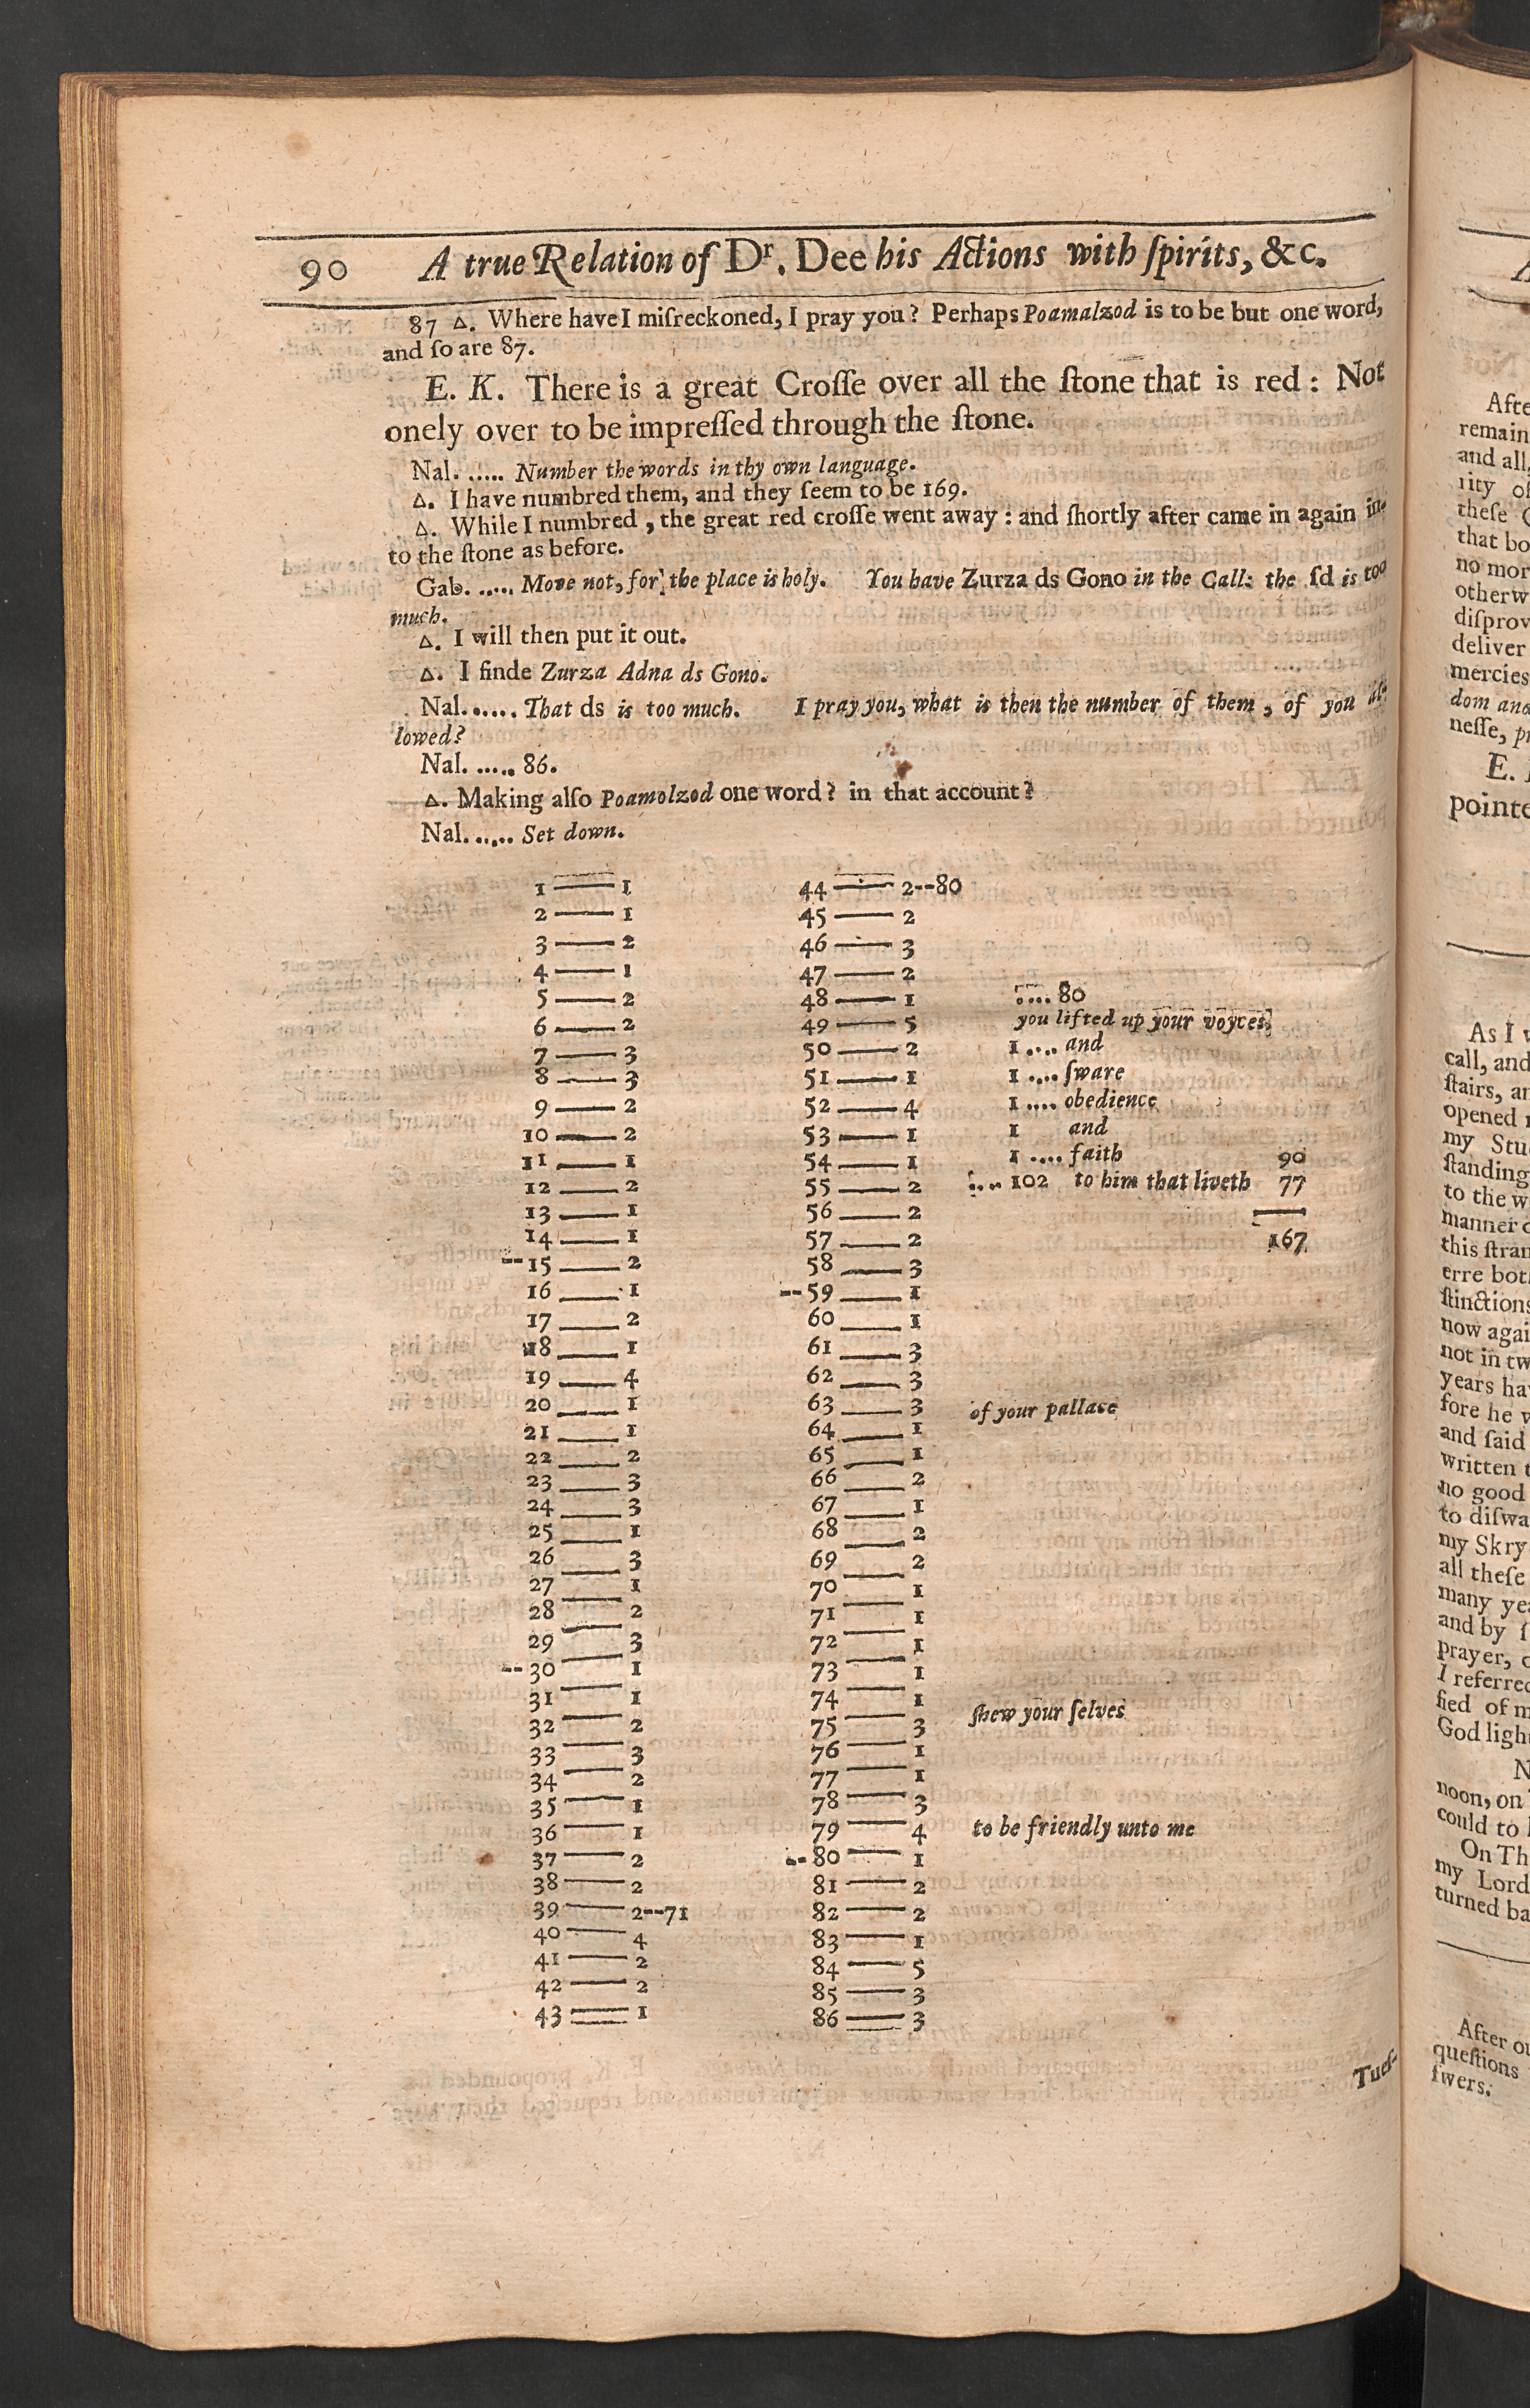 90 A true Relation of Dr. Dee his Actions with ſpirits, &c.
87 Δ. Where have I miſreckoned, I pray you? Perhaps Poamalzod is to be but one word,
and ſo are 87.
E. K. There is a great Croſſe over all the ſtone that is red: Not
onely over to be impreſſed through the ſtone.
Nal. ..... Number the words in thy own language.
Δ. I have numbred them, and they ſeem to be 169.
Δ. While I numbred, the great red croſſe went away: and ſhortly after came in again in-
to the ſtone as before.
Gab. ..... Move not, for the place is holy. You have Zurza ds Gono in the Call: the ſd is too
much.
Δ. I will then put it out.
Δ. I finde Zurza Adna ds Gono.
Nal. ..... That ds is too much. I pray you, what is then the number of them, of you al-
lowed?
Nal. ..... 86.
Δ. Making alſo Poamolzod one word? in that account?
Nal. ..... Set down.
1 — 1
2 — 1
3 — 2
4 — 1
5 — 2
6 — 2
7 — 3
8 — 3
9 — 2
10 — 2
11 — 1
12 — 2
13 — 1
14 — 1
--15 — 2
16 — 1
17 — 2
18 — 1
19 — 4
20 — 1
21 — 1
22 — 2
23 — 3
24 — 3
25 — 1
26 — 3
27 — 1
28 — 2
29 — 3
--30 — 1
31 — 1
32 — 2
33 — 3
34 — 2
35 — 1
36 — 1
37 — 2
38 — 2
39 — 2--71
40 — 4
41 — 2
42 — 2
43 — 1
44 — 2--80
45 — 2
46 — 3
47 — 2
48 — 1
49 — 5
50 — 2
51 — 1
52 — 4
53 — 1
54 — 1
55 — 2
56 — 2
57 — 2
58 — 3
--59 — 1
60 — 1
61 — 3
62 — 3
63 — 3
64 — 1
65 — 1
66 — 2
67 — 1
68 — 2
69 — 2
70 — 1
71 — 1
72 — 1
73 — 1
74 — 1
75 — 3
76 — 1
77 — 1
78 — 3
79 — 4
--80 — 1
81 — 2
82 — 2
83 — 1
84 — 5
85 — 3
86 — 3
.... 80
you lifted up your voyces
1 .... and
1 .... ſware
1 .... obedience
1 and
1 .... faith 90
.... 102 to him that liveth 77
167
of your pallace
ſhew your ſelves
to be friendly unto me
Tueſ-
Afte
remain
and all,
rity of
theſe
that bo
no mor
otherw
diſprov
deliver
mercies
dom and
neſſe,
E.
pointe
As I
call, and
ſtairs, an
opened
my Stu
ſtanding
to the w
manner
this ſtran
erre bot
ſtinctions
now agai
not in tw
years hav
fore he w
and ſaid
written
no good
to diſwa
my Skry
all theſe
many yea
and by
prayer,
I referred
fied of m
God light
N
noon, on
could to
On Th
my Lord
turned ba
After ou
queſtions
ſwers: